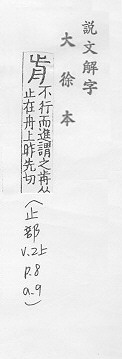 說文解字
大徐本
歬
不行而進謂之歬从
止在舟上昨先切
(止部
v.2上
p.8
a-9)